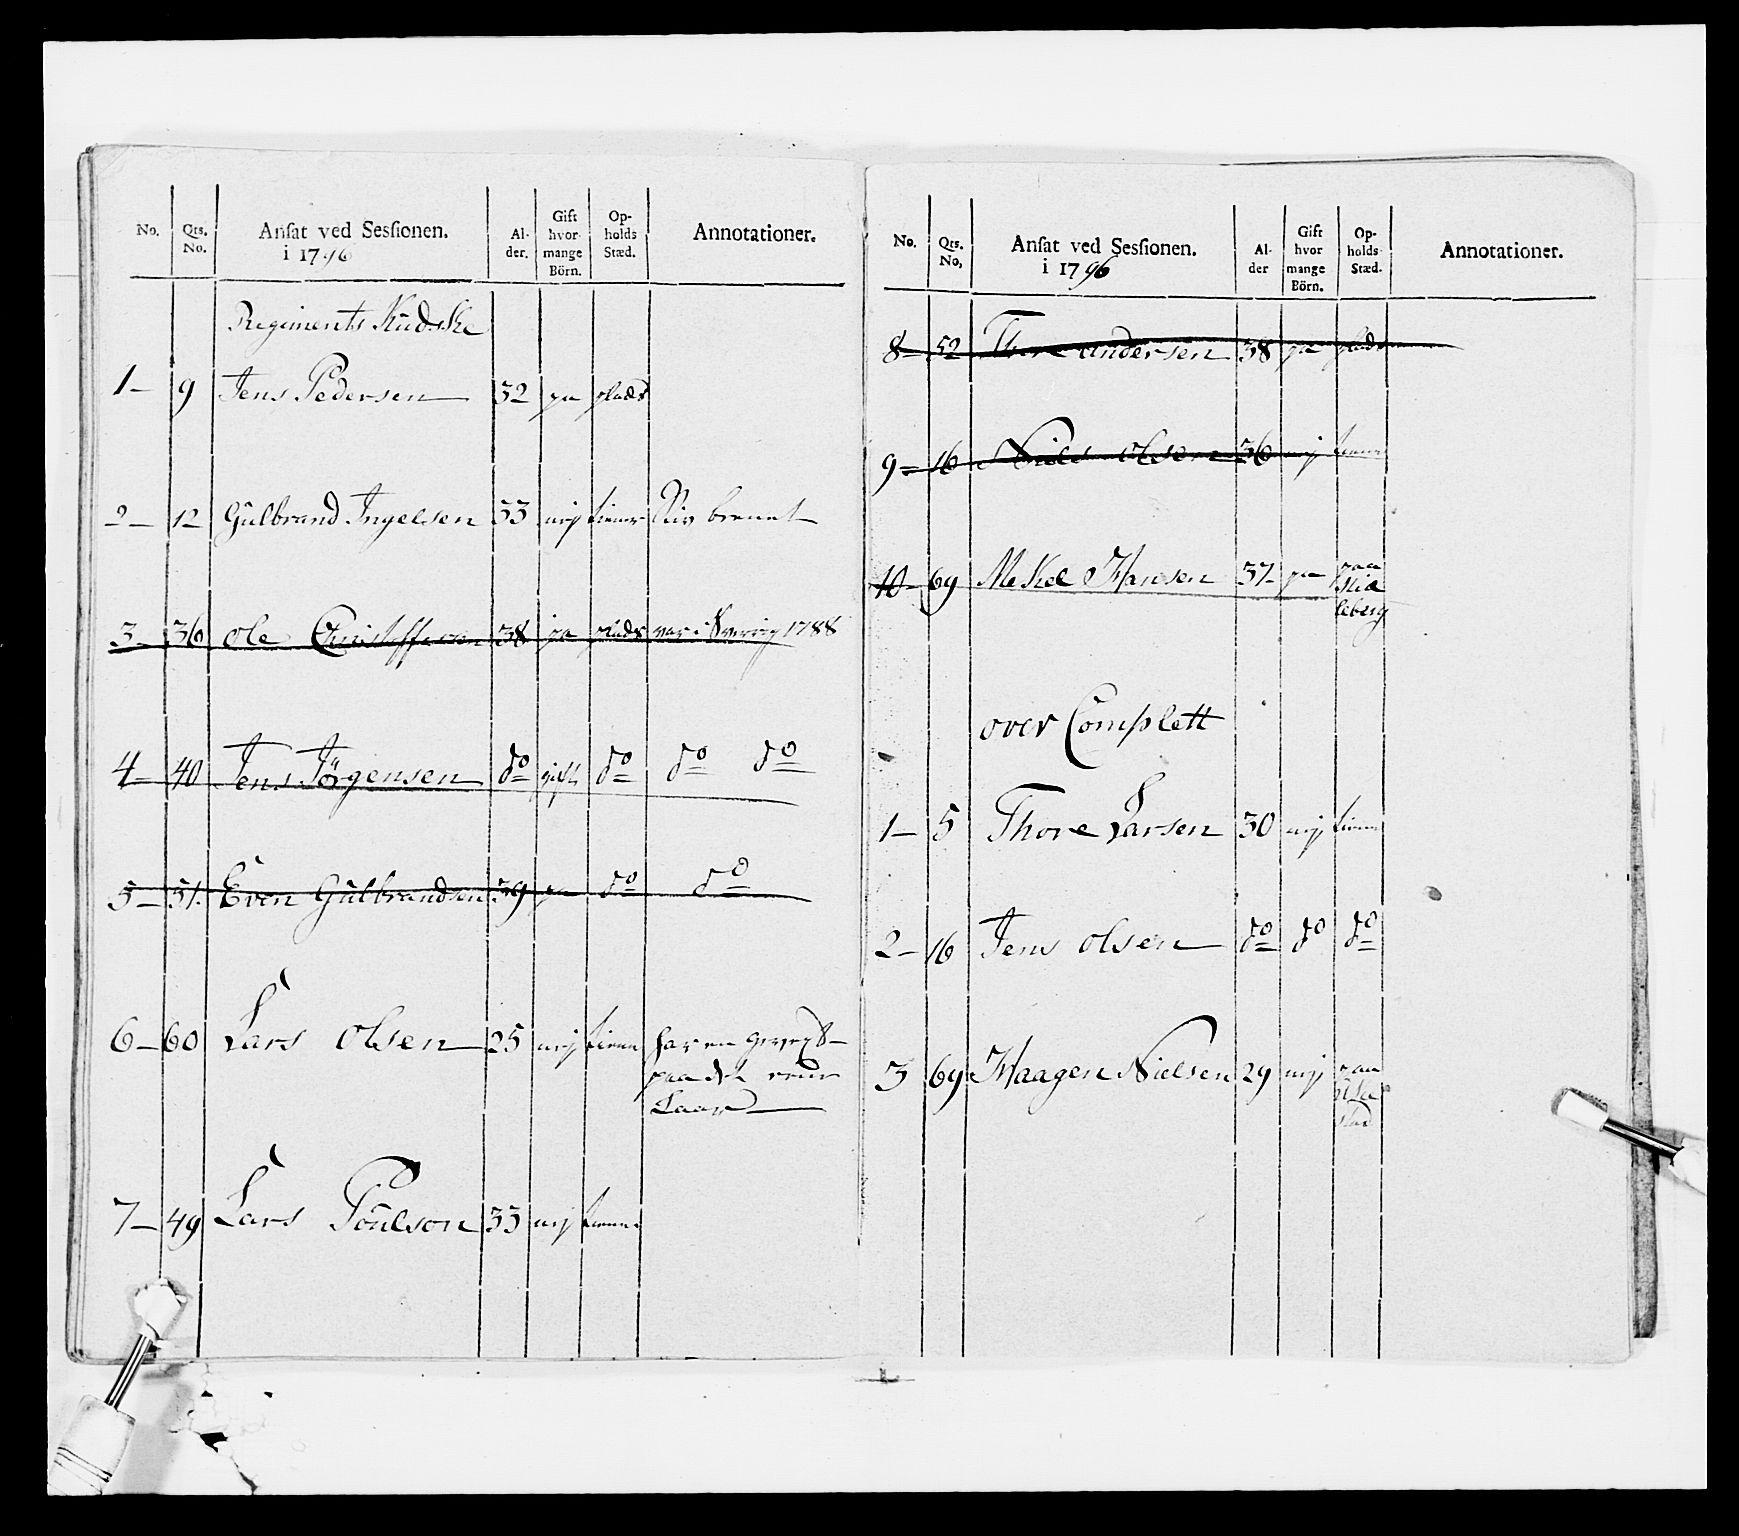 No. Qts. No. Ansat ved Sessionen. i 1796 Alder. Gift hvor mange Börn. Opholds Stæd. Annotationer.
Regiments Kudske
1- 9 Jens Pedersen 32 ja plads
2- 12 Gulbrand Ingelsen 33 nej tiener brenet
3- 36 Ole Christoffersen 38 ja plads var i Sverrig 1788
4- 40 Jens Jörgensen do gift do do do
5- 51. Even Gulbrandsen 39 ja do do
6- 60 Lars Olsen 25 nej tiener har en
paa det
Laar
7- 49 Lars Poulson 33 nej tiener
No. Qts. No, Ansat ved Sessionen. i 1796 Alder Gift hvor mange Börn. Opholds Stæd. Annotationer.
8- 52 Thore Andersen 38 ja plads
9- 16 Niels Olsen 36 nej tiener
10- 69 Mekel Hansen 37- ja paa
leberg
over Complett
1- 5 Thore Larsen 30 nej tiener
2- 16 Jens Olsen do do do
3 69 Haagen Nielsen 29 nej paa
stad